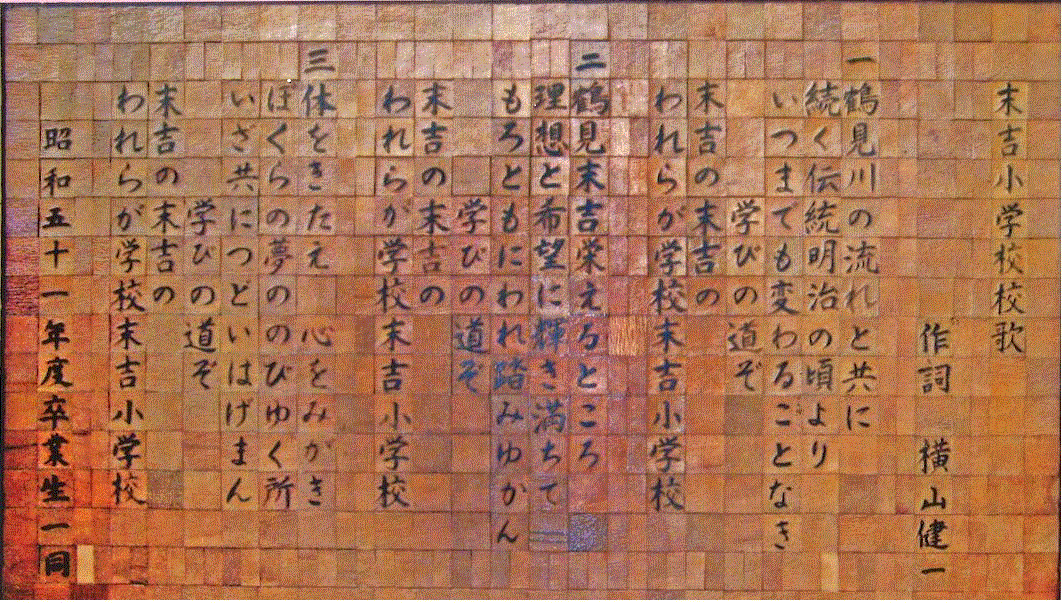 末吉小学校校歌
作詞 横山健一
一
鶴見川の流れと共に
続く伝統明治の頃より
いつまでも変わることなき
学びの道ぞ
末吉の末吉の
われらが学校末吉小学校
二
鶴見末吉栄えるところ
理想と希望に輝き満ちて
もろともにわれ踏みゆかん
学びの道ぞ
末吉の末吉の
われらが学校末吉小学校
三
体をきたえ 心をみがき
ぼくらの夢ののびゆく所
いざ共につどいはげまん
学びの道ぞ
末吉の末吉の
われらが学校末吉小学校
昭和五十一年度卒業生一同